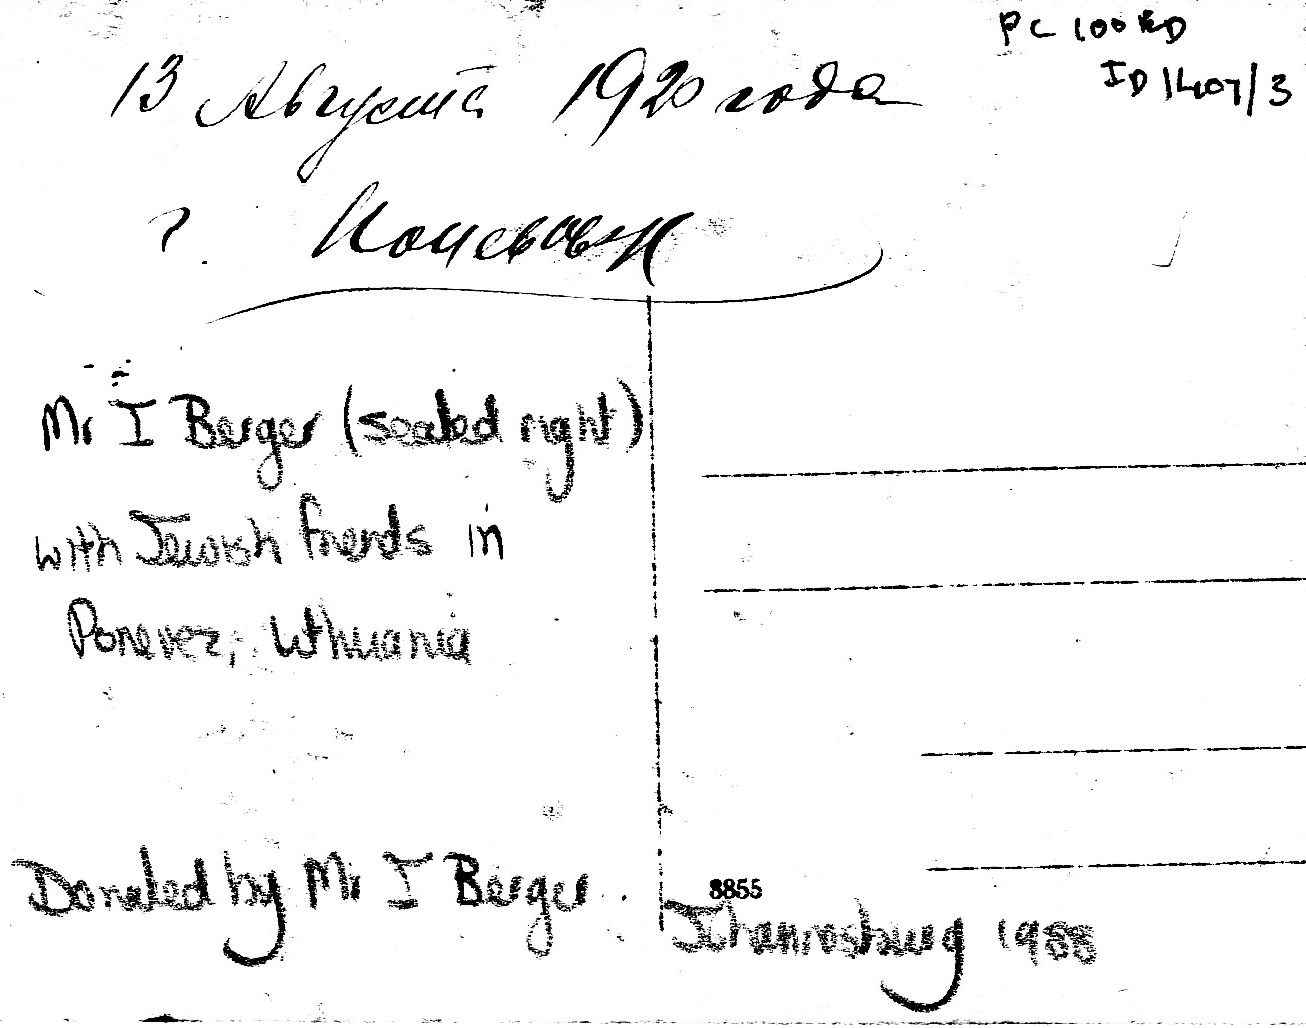 PC 100 RD
ID 1407/3
13 Августа 1920 года
г. Поневеж
Mr I Berger (seated right)
with Jewish friends in
Ponevez, Lithuania
Donated by Mr I Berger.
8855
Johannesburg 1988